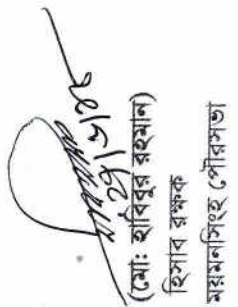 (মোঃ হাবিবুর রহমান)
হিসাব রক্ষক
ময়মনসিংহ পৌরসভা